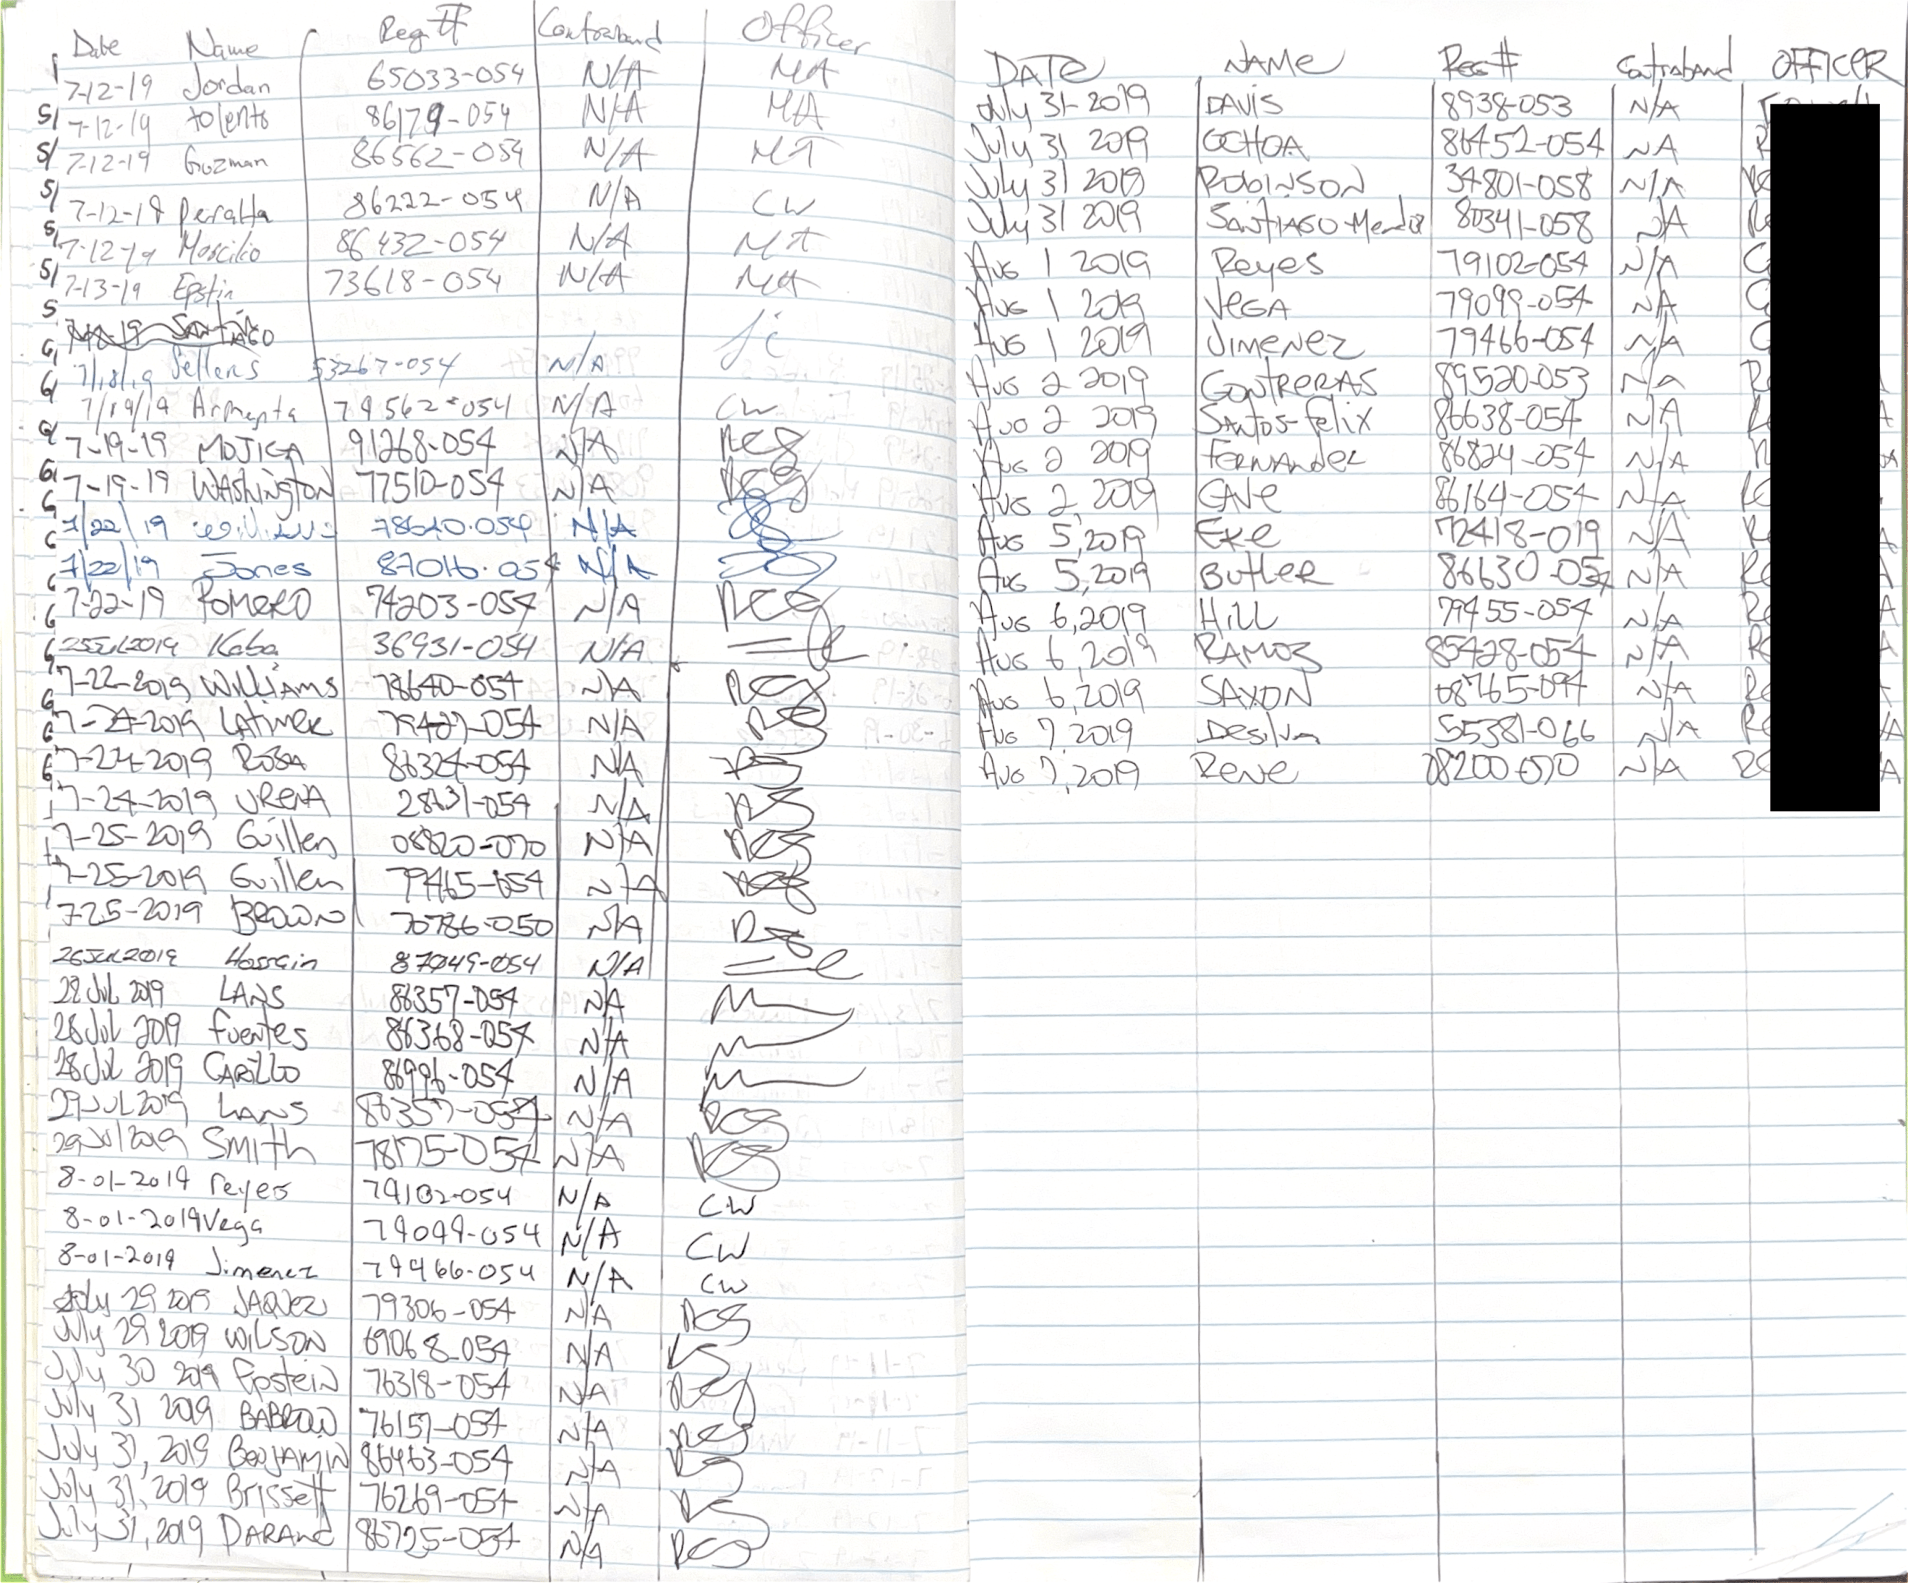 Date Name Reg# Contraband Officer
7-12-19 Jordan 65033-054 N/A MA
7-12-19 tolento 86179-054 N/A MA
7-12-19 Guzman 86562-054 N/A MA
7-12-19 Peralta 86222-054 N/A CW
7-12-19 86432-054 N/A MA
7-13-19 Epstin 73618-054 N/A MA
Santiago
7/18/19 Sellers 53267-054 N/A JC
7/19/19 Armenta 79562-054 N/A CW
7-19-19 MOJICA 91268-054 N/A
7-19-19 WAshingTON 77510-054 N/A
7/22/19 78640-054 N/A
7/22/19 Jones 87016-054 N/A
7-22-19 ROMERO 74203-054 N/A
25Jul2019 Kaba 36931-054 N/A
7-22-2019 WilliAMS 78640-054 N/A
7-24-2019 LATIMER 79427-054 N/A
7-24-2019 ROSA 86324-054 N/A
7-24-2019 URENA 28631-054 N/A
7-25-2019 Guillen 08820-070 N/A
7-25-2019 Guillen 79465-054 N/A
7-25-2019 BROWN 70786-050 N/A
26Jul2019 Hossain 87049-054 N/A
28 Jul 2019 LANS 86357-054 N/A
28 Jul 2019 fuentes 86368-054 N/A
28 Jul 2019 CARillO 86996-054 N/A
29 Jul 2019 LANS 86357-054 N/A
29 Jul 2019 SMITH 78175-054 N/A
8-01-2019 reyes 79102-054 N/A CW
8-01-2019 Vega 79099-054 N/A CW
8-01-2019 Jimenez 79466-054 N/A CW
July 29 2019 JAQUEZ 79306-054 N/A
July 29 2019 WILSON 69068-054 N/A
July 30 2019 Epstein 76318-054 N/A
July 31 2019 BABROW 76157-054 N/A
July 31, 2019 BENJAMIN 86463-054 N/A
July 31, 2019 Brissett 76269-054 N/A
July 31, 2019 DARANd 86725-054 N/A
DATE NAME Reg# Contraband OFFICER
July 31-2019 DAVIS 8938-053 N/A
July 31 2019 OCHOA 86452-054 NA R
July 31 2019 ROBINSON 34801-058 N/A Re
July 31 2019 SantiAGO-Mendez 80341-058 NA Re
Aug 1 2019 Reyes 79102-054 N/A C
Aug 1 2019 VEGA 79099-054 NA C
Aug 1 2019 JIMENEZ 79466-054 N/A C
Aug 2 2019 CONTRERAS 89520-053 N/A Re
Aug 2 2019 SANTOS-felix 86638-054 N/A Re
Aug 2 2019 FERNANdez 86824-054 N/A R
Aug 2, 2019 CAVe 86164-054 N/A Re
Aug 5, 2019 EKe 72418-019 N/A Re
Aug 5, 2019 BUTLER 86630-054 N/A Re
Aug 6, 2019 Hill 79455-054 N/A Re
Aug 6, 2019 RAMOS 85428-054 N/A Re
Aug 6, 2019 SAXON 08765-094 N/A Re
Aug 7, 2019 Desilva 55381-066 N/A Re
Aug 7, 2019 RENe 08200-070 N/A Re